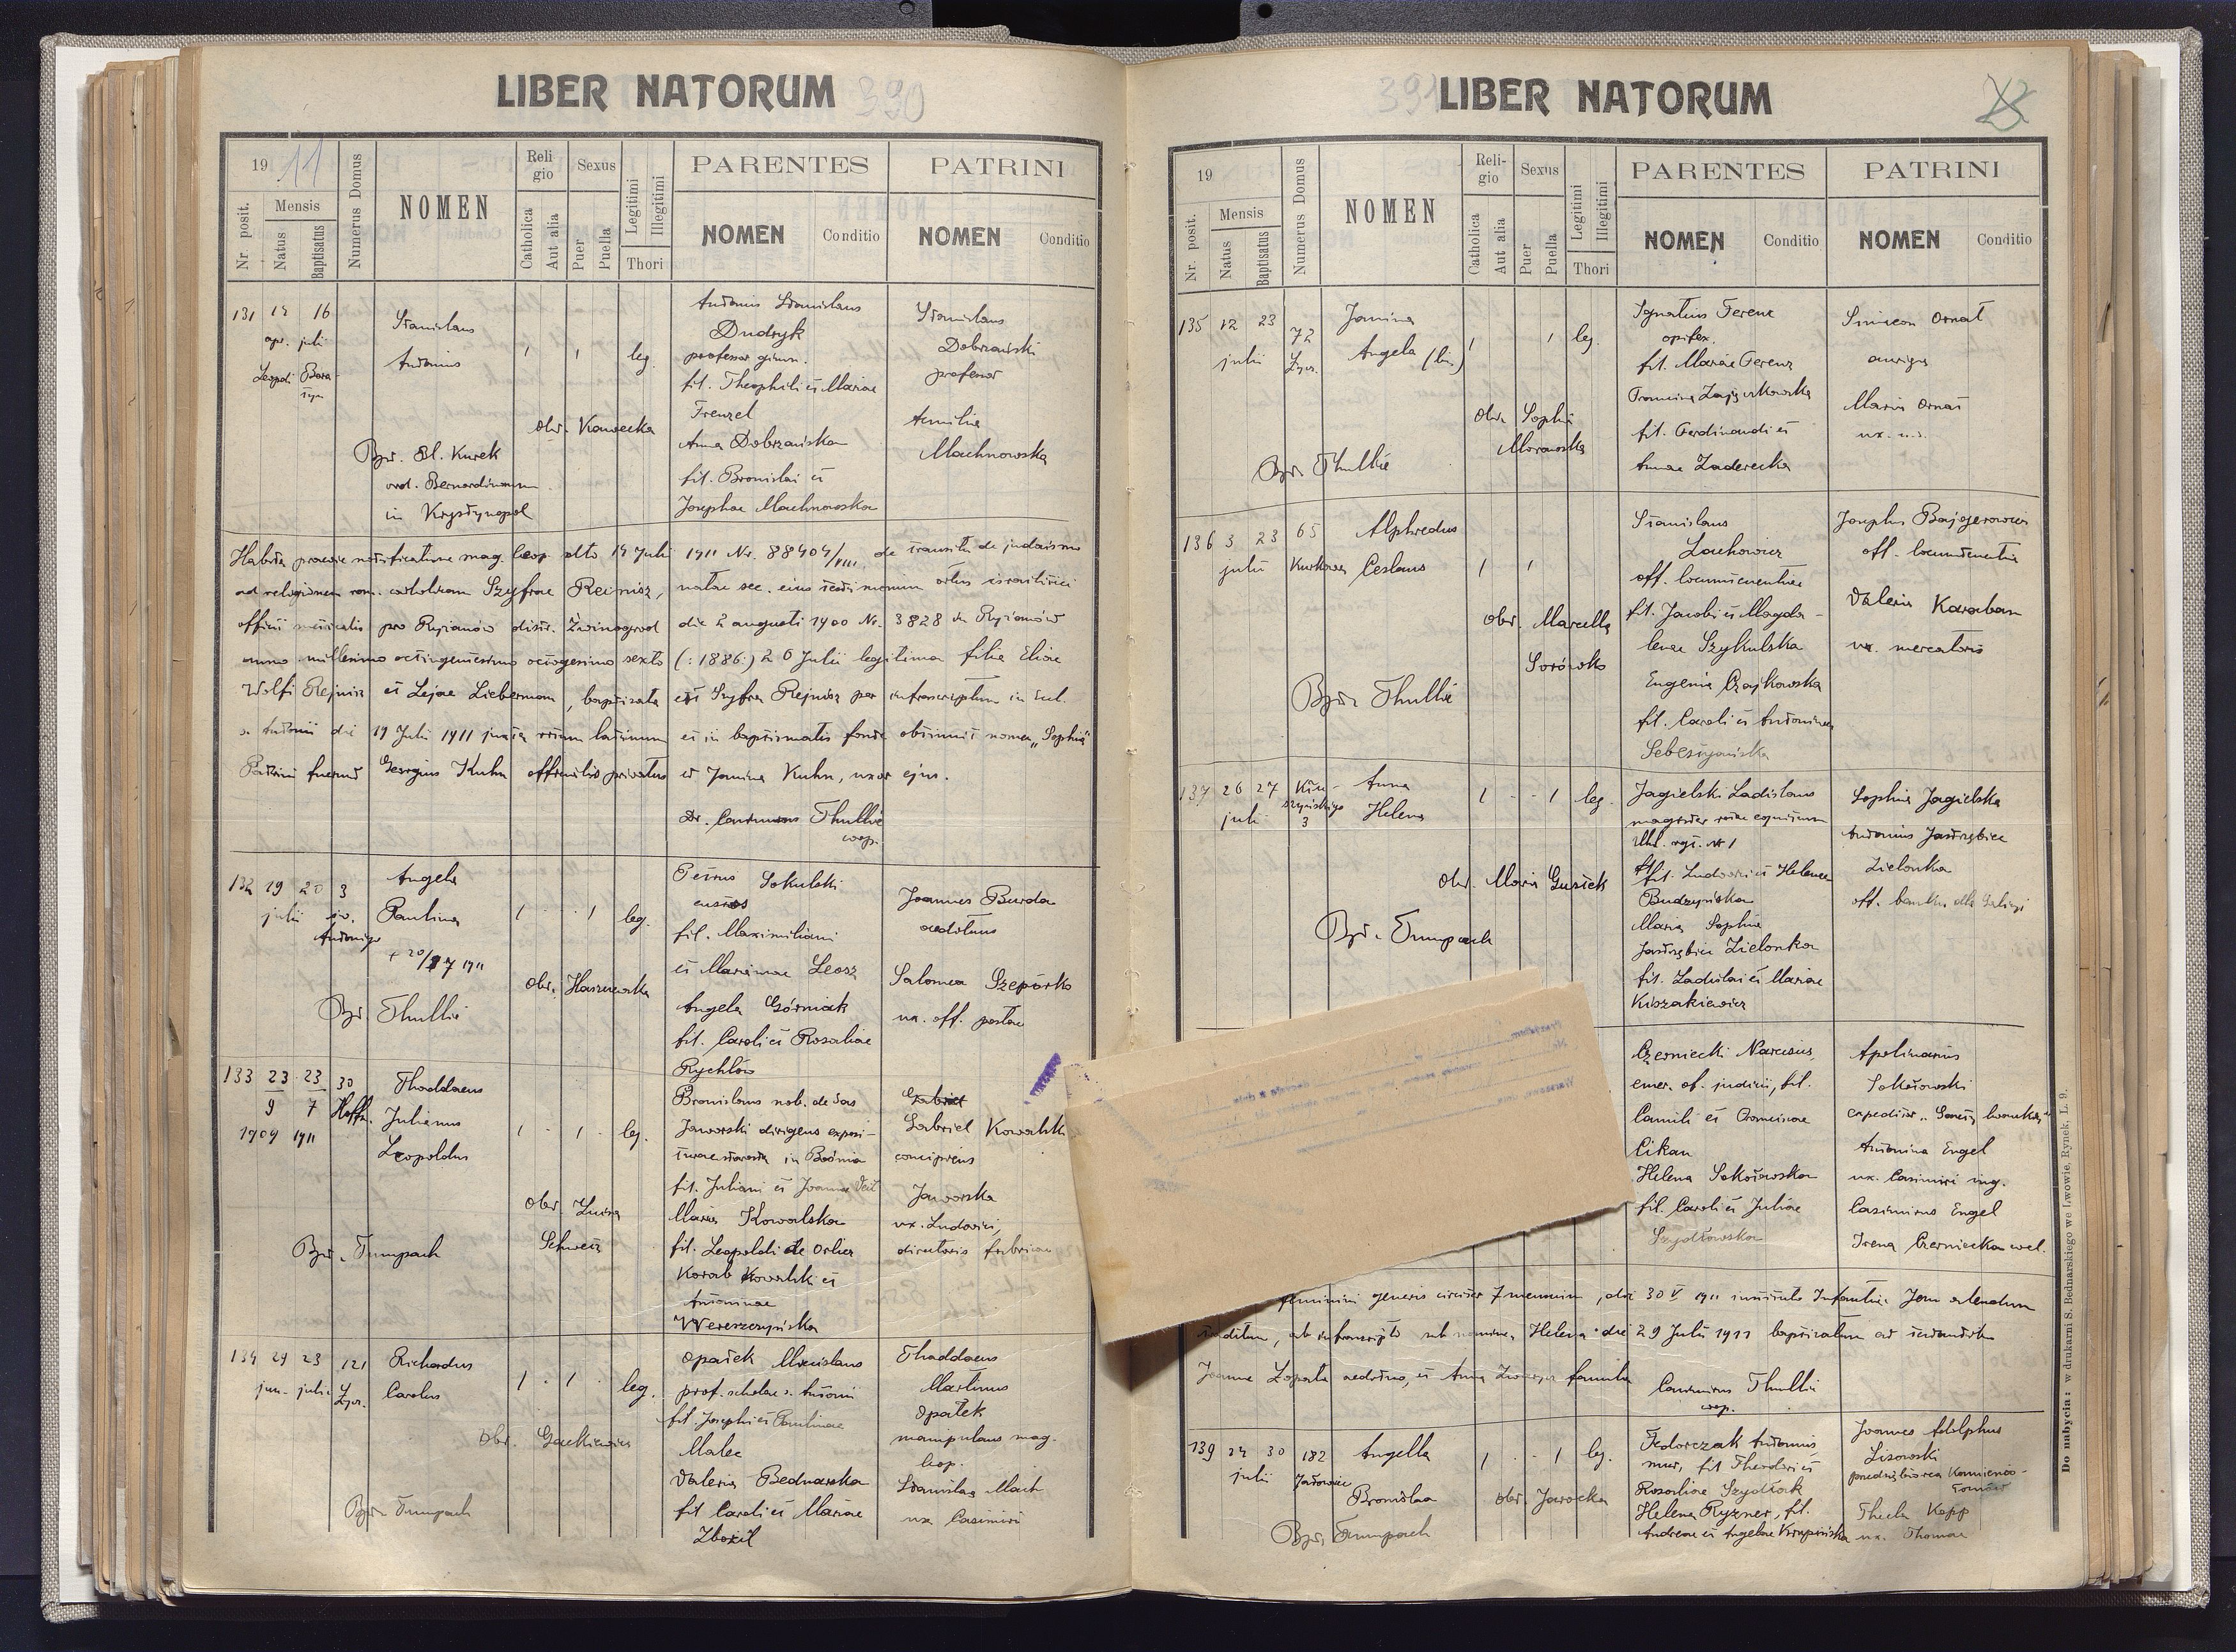 LIBER NATORUM 390
19 11
Nr posit.
Mensis
Natus
Baptisatus
Numerus Domus
NOMEN
Religio
Catholica
Aut alia
Sexus
Puer
Puella
Legitimi
Illegitimi
Thori
PARENTES
NOMEN Conditio
PATRINI
NOMEN Conditio
131 14 16 Stanislaus Antonius Stanislaus Stanislaus
apr. juli Dudryk Dobrzański
Leopoli Antonius 1 1 leg. professor gimn. professor
fil. Theophili et Mariae
Frenzel Aemilia
obs. Kawecka Anna Dobrzańska Machnowska
Bpt. El. Kurek fil. Bronislai et
ord. Bernardinorum Josephae Machnowska
in Krystynopol
Habita praevie notificatione mag. Leop. dto 14 Juli 1911 Nr. 88404/VIII de transitu de judaismo
ad religionem rom. catholicam Szyfrae Reinisz, natae sec. eius testimonium ortus israelitici
officii metricalis pro Ryzianów distr. Zwinogrod die 2 augusti 1900 Nr. 3828 in Ryzianów
anno millesimo octingentesimo octogesimo sexto (:1886:) 26 Julii legitima filia Eliae
Wolfi Rejnisz et Lejae Lieberman, baptizata est Szyfra Rejnisz per infrascriptum in Eccl.
s. Antonii die 19 Julii 1911 juxta ritum latinum et in baptismatis fonte obtinuit nomen "Sophia"
Patrini fuerunt Georgius Kuhn officialis privatus et Janina Kuhn, uxor ejus.
Dr. Casimirus Thullie
coop.
132 19 20 3 Angela Petrus Sokulski Joannes Burda
julii św. Paulina 1 1 leg. custos aedituus
Antoniego fil. Maximiliani
+ 20/7 1911 et Mariannae Leosz Salomea Szepórko
obs. Harzewska Angela Górniak ux. off. postae
Bpt. Thullie fil. Caroli et Rosaliae
Rychlów
133 23 23 30 Thaddaeus Bronislaus nob. de Sas
9 7 Hoffm. Julianus 1 1 leg. Jaworski dirigens exposi- Gabriel Kowalski
1909 1911 Leopoldus turae starostae in Bośnia concipiens
fil. Juliani et Joannae Veit Jaworska
obs. Luiza Maria Kowalska ux. Ludovici,
Bpt. Trumpach Schweiz fil. Leopoldi de Orlice directoris fabricae
Korab Kowalski et
Antoninae
Wereszczyńska
134 24 23 121 Richardus Opałek Mieczislaus Thaddaeus
jun. julii Łycz. Carolus 1 1 leg. prof. scholae s. Antonii Martinus
fil. Josephi et Paulinae Opałek
obs. Gackiewicz Malec manipulans mag.
Leop.
Valeria Bednarska Stanislaa Mach
Bpt. Trumpach fil. Caroli et Mariae ux Casimiri
Zbożil
391 LIBER NATORUM
19
Nr. posit.
Mensis
Natus
Baptisatus
Numerus Domus
NOMEN
Religio
Catholica
Aut alia
Sexus
Puer
Puella
Legitimi
Illegitimi
Thori
PARENTES
NOMEN Conditio
PATRINI
NOMEN Conditio
135 12 23 72 Janina Ignatius Ferenz Simeon Ornat
julii Łycz. Angela (bin.) 1 1 leg. opifex. auriga
fil. Mariae Ferenz
Francisca Zajączkowska Maria Ornat
obs. Sophia fil. Ferdinandi et ux. u.s.
Morawska Annae Zaderecka
Bpt. Thullie
136 3 23 65 Alphredus Stanislaus Josephus Bajgerowicz
julii Kurkowa Ceslaus 1 1 Lachowicz off. locumtenentiae
off. locumtenentiae
obs. Marcella fil. Jacobi et Magda- Valeria Karaban
Sorówko lenae Szykulska ux. mercatoris
Bpt. Thullie Eugenia Czajkowska
fil. Caroli et Antoninae
Sebestyańska
137 26 27 Kru- Anna Jagielski Ladislaus Sophia Jagielska
juli szyńskiego Helena 1 1 leg. magister equitum Antonius Jastrzębiec
3 Uhl. rgt. Nr 1 Zielonka
obs. Maria Gustek fil. Ludovici et Helenae off. banku dla Galicyi
Budzyńska
Bpt. Trumpach Maria Sophia
Jastrzębiec Zielonka
fil. Ladislai et Mariae
Kiszakiewicz
Czerniecki Narcisus, Apolinarius
emer. of. judicii, fil. Sokołowski
Camili et Franciscae expeditor "Gazety lwowskiej"
Cikan Antonina Engel
Helena Sokołowska ux. Casimiri ing.
fil. Caroli et Juliae Casimirus Engel
Szydłowska Irena Czerniecka
feminini generis circiter 7 mensium, die 30 V 1911 instituto Infantis Jesu alendum
traditum, ab infrascripto sub nomine Helena die 29 Julii 1911 baptizatum ad
Joanne Łopata aedituo, et Anna famula Casimirus Thullie
coop.
139 24 30 182 Angella 1 1 leg. Fedorczak Antonius Joannes Adolphus
julii Janowska mur, fil Theodori et Lisowski
Bronislaa obs. Jarocka Rosaliae Szydłok przedsiębiorca Kamienio-
łomów
Helena Ryzner, fil. Thecla Kopp
Bpt. Trumpach Andreae et Angelae Krupińska ux. Thomae
Do nabycia: w drukarni S. Bednarskiego we Lwowie, Rynek, L. 9.